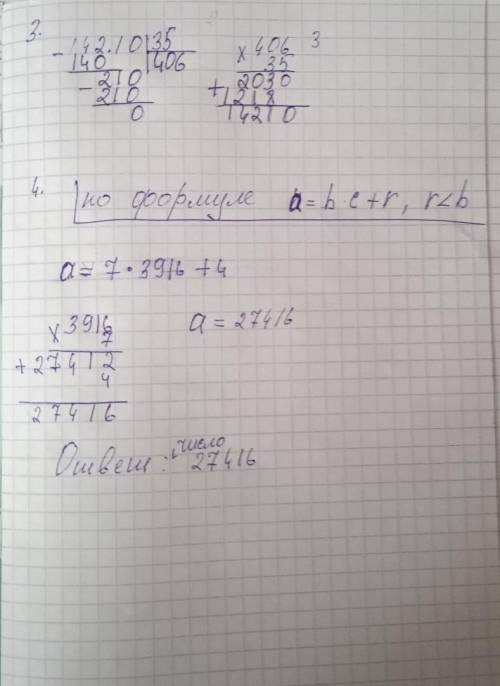 3.
- 142.10 | 35
140 | 406
- 210
210
0
× 406 3
35
2030
+ 1218
14210
4. по формуле a = b·c + r, r < b
a = 7 · 3916 + 4
× 3916
7
+ 27412
4
27416
a = 27416
Ответ: число 27416